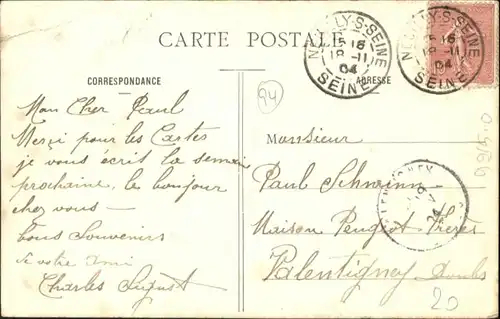 CARTE POSTALE
NEUILLY-S-SEINE
15 16
18 -11
04
SEINE
NEUILLY-S-SEINE
15 16
18 -11
04
SEINE
CORRESPONDANCE
ADRESSE
94
Mon Cher Paul
Merci pour les Cartes
je vous écrit la semaine
prochaine, le bonjour
chez vous —
bons Souvenirs
de votre ami
Charles August
Monsieur
Paul Schwinn
Maison Peugeot Frères
Valentigney Doubs
20